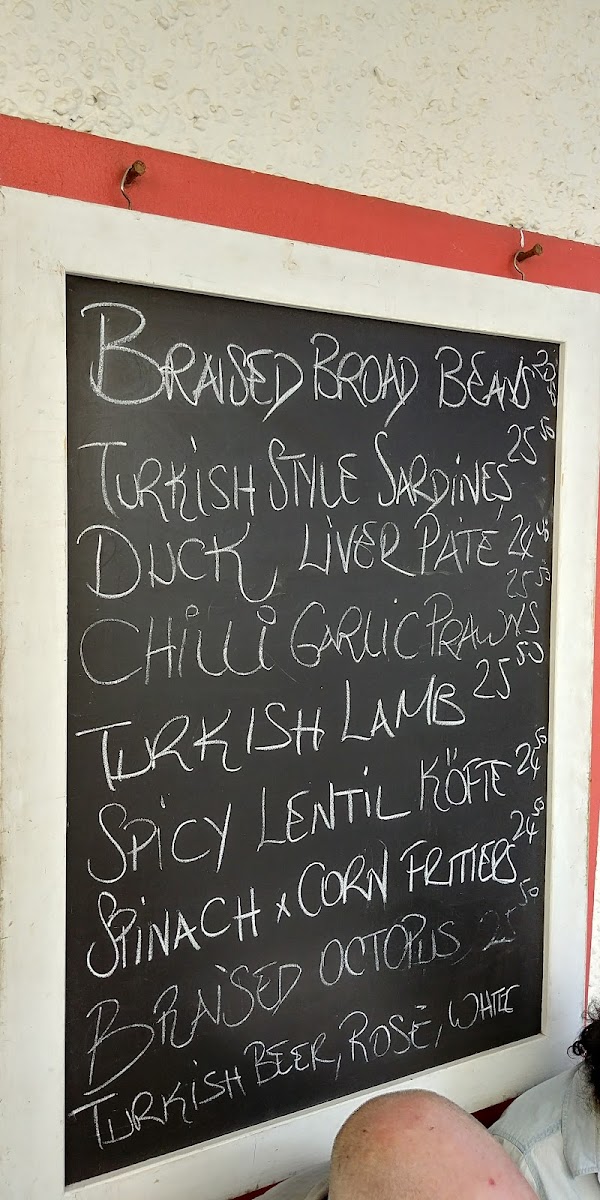 BRAISED BROAD BEANS
TURKISH STYLE SARDINES 25 50
DUCK LIVER PATÉ 24 50
CHILLI GARLIC PRAWNS 25 50
TURKISH LAMB 25 50
SPICY LENTIL KÖFTE 24 50
SPINACH x CORN FRITTERS 24 50
BRAISED OCTOPUS 25 50
TURKISH BEER, ROSÉ, WHITE